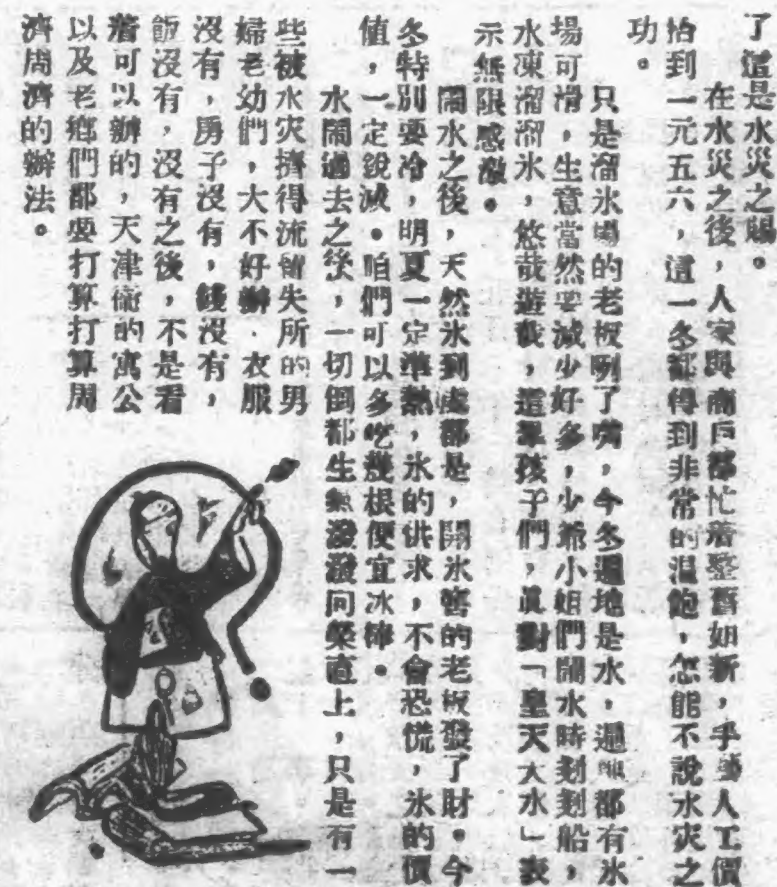 了這是水災之賜。
在水災之後，人家與商戶都忙着整舊如新，手藝人工價
抬到一元五六，這一冬都得到非常的溫飽，怎能不說水灾之
功。
只是溜氷塲的老板咧了嘴，今冬遍地是水，遍地都有氷
場可滑，生意當然要減少好多，少爺小姐們鬧水時划划船，
水凍溜溜氷，悠哉遊哉，這羣孩子們，眞對「皇天大水」表
示無限感激。
鬧水之後，天然氷到處都是，開氷窖的老板發了財。今
冬特別要冷，明夏一定準熱，氷的供求，不會恐慌，氷的價
值，一定銳減。咱們可以多吃幾根便宜冰棒。
水鬧過去之後，一切倒都生氣潑潑向榮直上，只是有一
些被水灾擠得流留失所的男
婦老幼們，大不好辦．衣服
沒有，房子沒有，錢沒有，
飯沒有，沒有之後，不是看
着可以辦的，天津衛的寓公
以及老鄉們都要打算打算周
濟周濟的辦法。